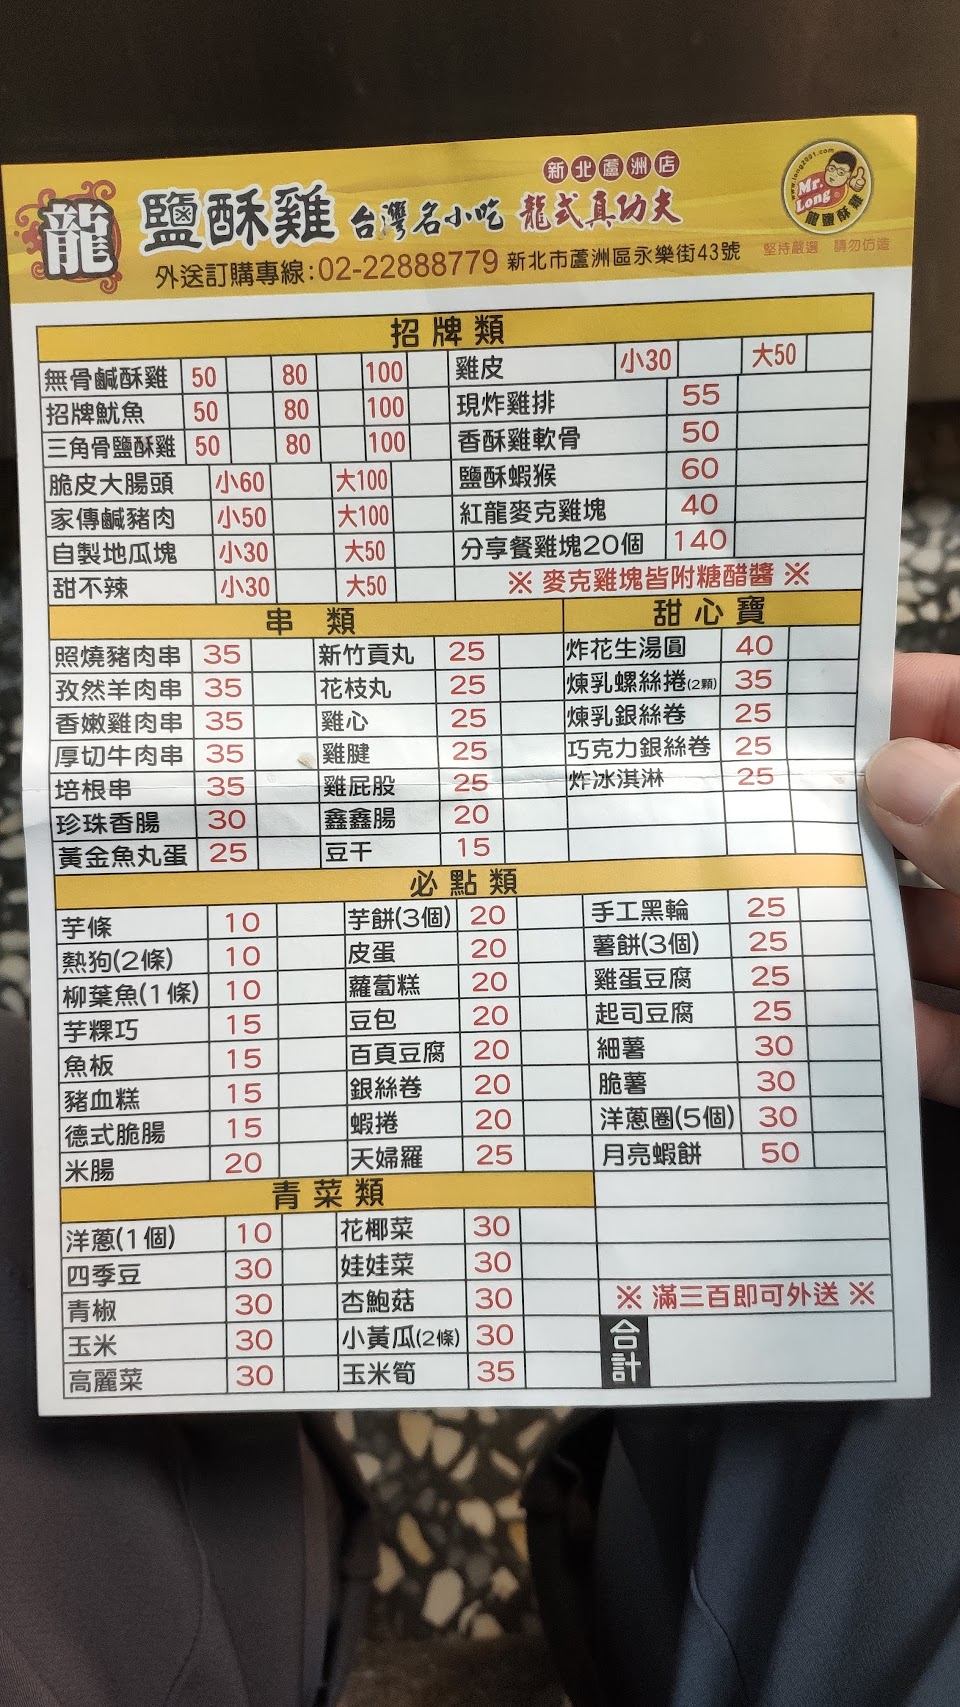 新北蘆洲店
龍 鹽酥雞 台灣名小吃 龍式真功夫
www.long2001.com
Mr. Long
龍鹽酥雞
堅持嚴選 請勿仿造
外送訂購專線:02-22888779 新北市蘆洲區永樂街43號
招牌類
無骨鹹酥雞 50 80 100
招牌魷魚 50 80 100
三角骨鹽酥雞 50 80 100
脆皮大腸頭 小60 大100
家傳鹹豬肉 小50 大100
自製地瓜塊 小30 大50
甜不辣 小30 大50
雞皮 小30 大50
現炸雞排 55
香酥雞軟骨 50
鹽酥蝦猴 60
紅龍麥克雞塊 40
分享餐雞塊20個 140
※ 麥克雞塊皆附糖醋醬 ※
串類
照燒豬肉串 35
孜然羊肉串 35
香嫩雞肉串 35
厚切牛肉串 35
培根串 35
珍珠香腸 30
黃金魚丸蛋 25
新竹貢丸 25
花枝丸 25
雞心 25
雞腱 25
雞屁股 25
鑫鑫腸 20
豆干 15
甜心寶
炸花生湯圓 40
煉乳螺絲捲(2顆) 35
煉乳銀絲卷 25
巧克力銀絲卷 25
炸冰淇淋 25
必點類
芋條 10
熱狗(2條) 10
柳葉魚(1條) 10
芋粿巧 15
魚板 15
豬血糕 15
德式脆腸 15
米腸 20
芋餅(3個) 20
皮蛋 20
蘿蔔糕 20
豆包 20
百頁豆腐 20
銀絲卷 20
蝦捲 20
天婦羅 25
手工黑輪 25
薯餅(3個) 25
雞蛋豆腐 25
起司豆腐 25
細薯 30
脆薯 30
洋蔥圈(5個) 30
月亮蝦餅 50
青菜類
洋蔥(1個) 10
四季豆 30
青椒 30
玉米 30
高麗菜 30
花椰菜 30
娃娃菜 30
杏鮑菇 30
小黃瓜(2條) 30
玉米筍 35
※ 滿三百即可外送 ※
合計